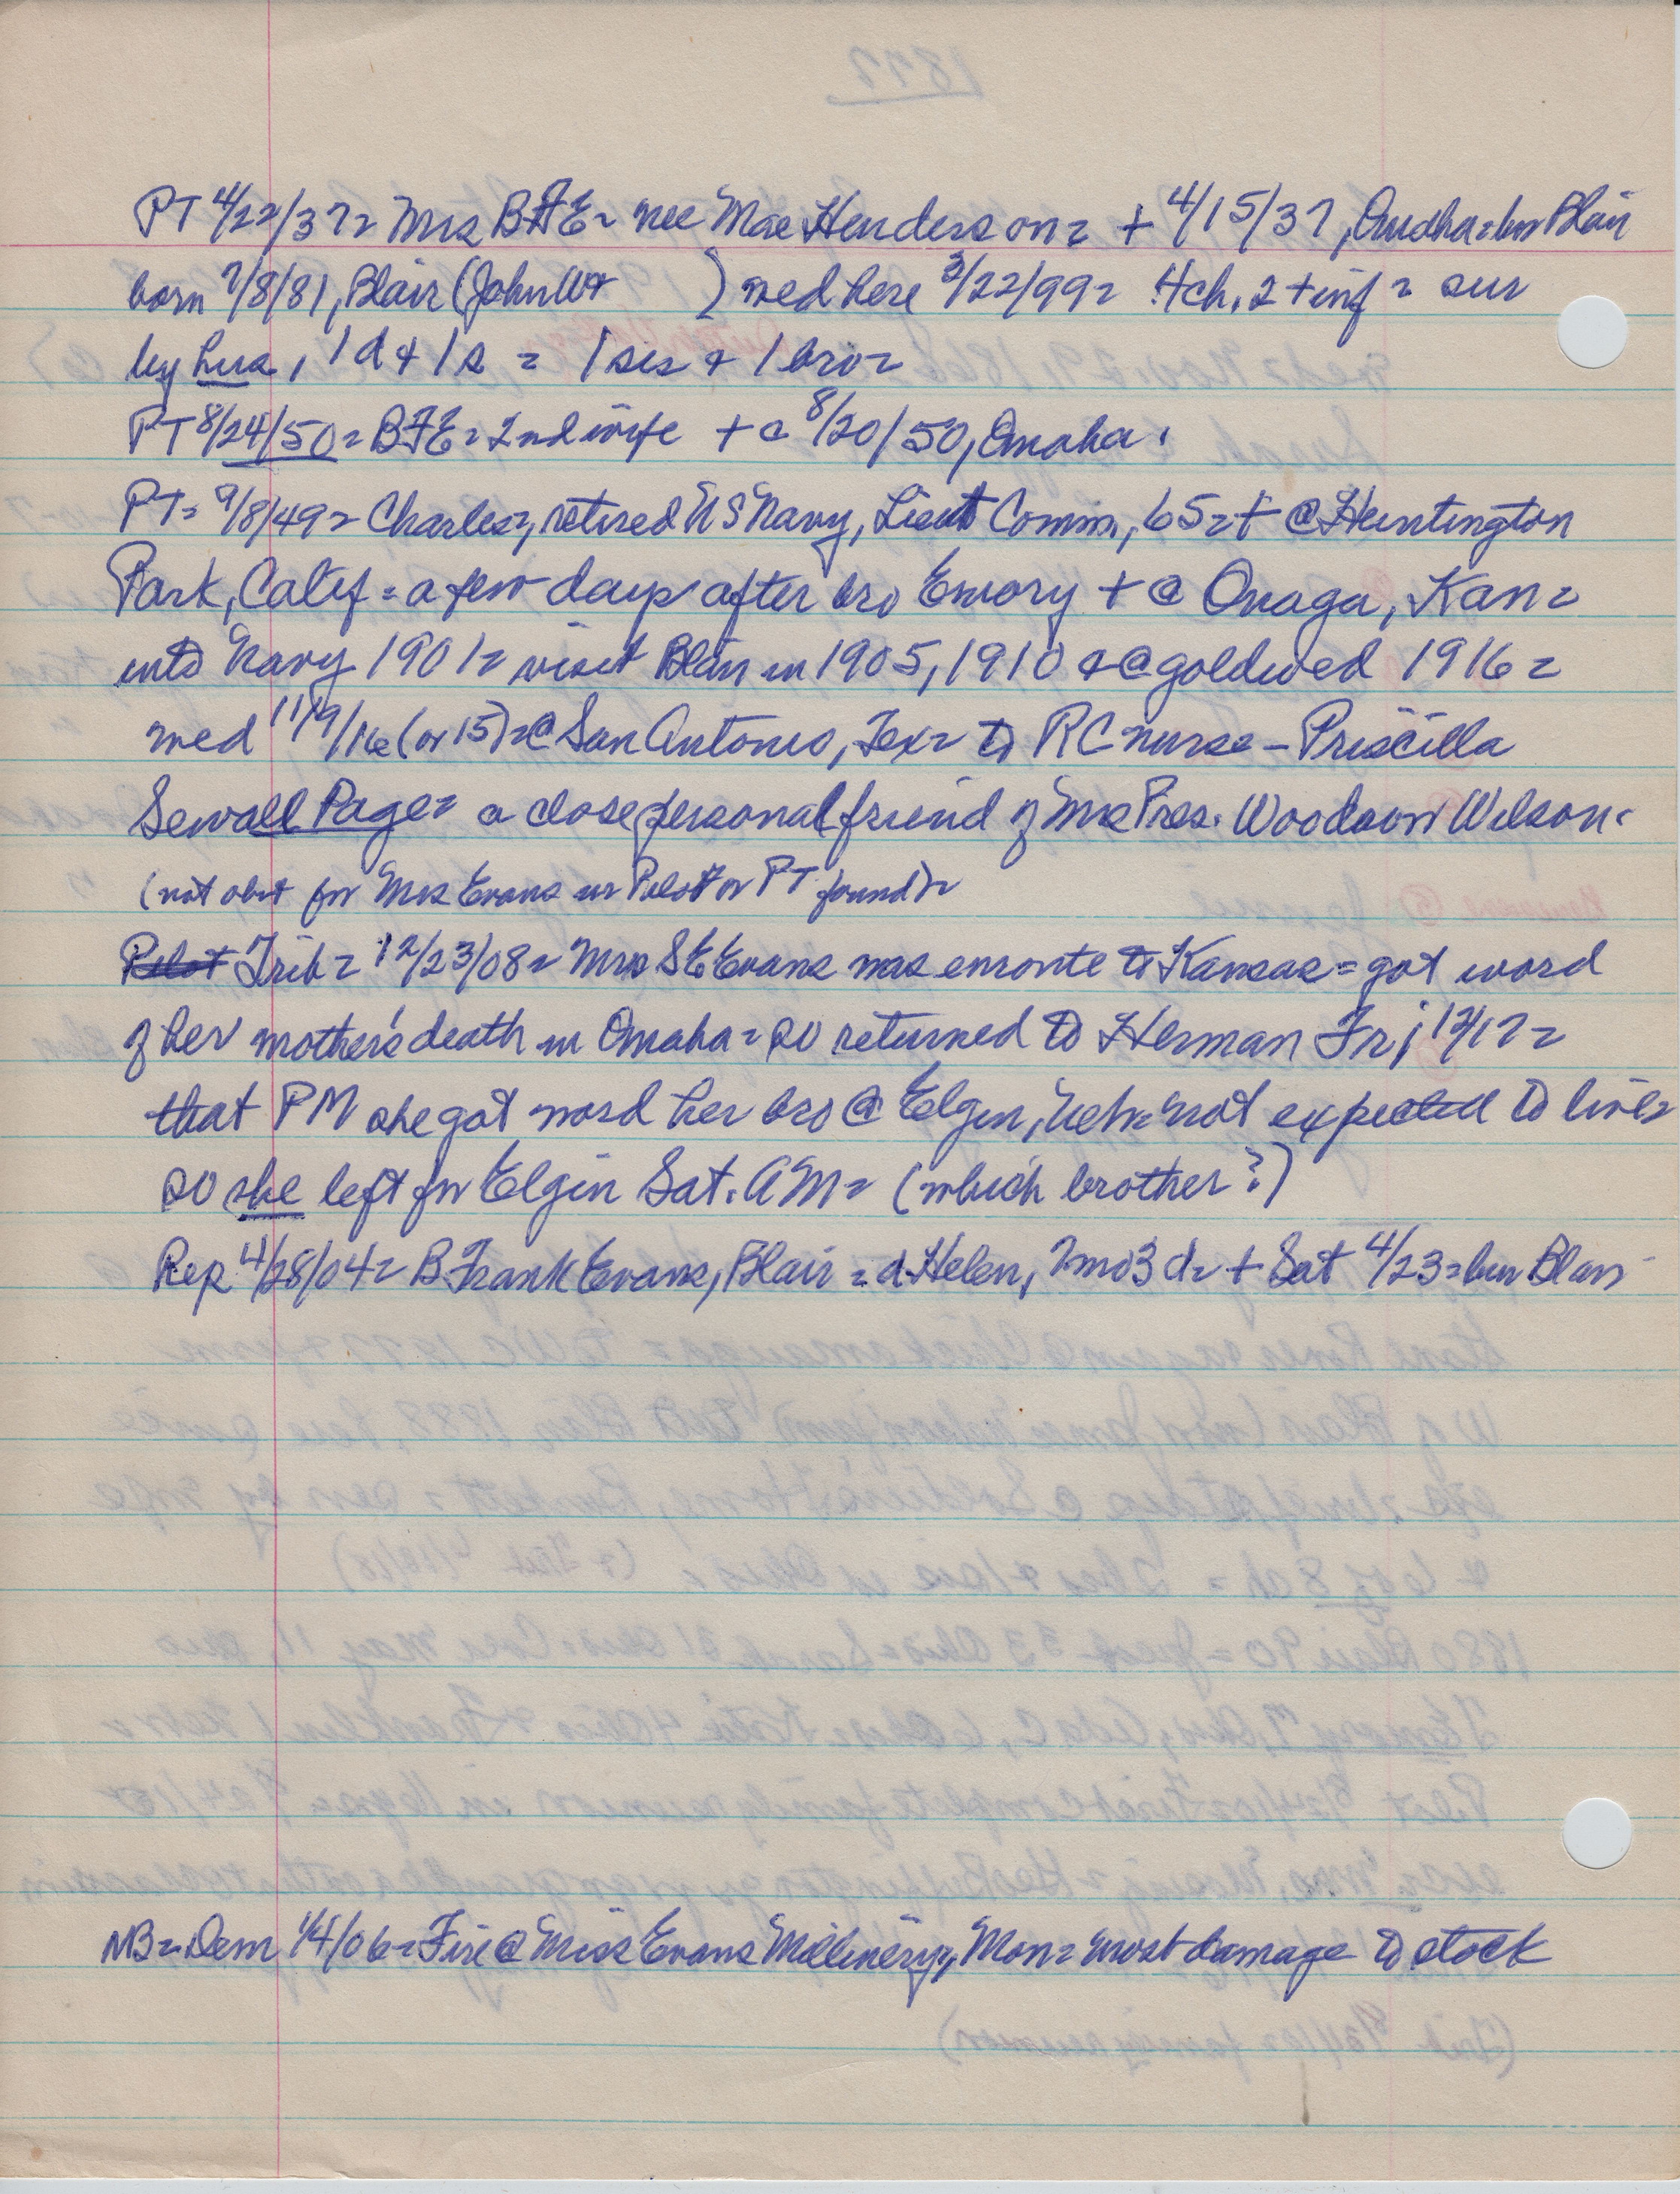 PT 4/22/37= Mrs BFE= nee Mae Henderson= + 4/15/37, Omaha= bur Blair
born 7/8/81, Blair (John W+ ) wed here 3/22/99= 4ch, 2 + inf = sur
by hus, 1d + 1s = 1 sis + 1 bro=
PT 8/24/50= BFE= 2nd wife + c 8/20/50, Omaha.
PT= 9/8/49= Charles=, retired US Navy, Lieut Comm., 65=+ @ Huntington
Park, Calif = a few days after bro Emory + @ Onaga, Kan=
into Navy 1901= visit Blair in 1905, 1910 + @ goldwed 1916=
wed 11/9/16 (or 15)=@ San Antonio, Tex= to RC nurse - Priscilla
Sewall Page= a close personal friend of Mrs Pres. Woodrow Wilson.
(not obit for Mrs Evans in Pilot or PT found)=
Pilot Trib= 12/23/08= Mrs SE Evans was enroute to Kansas= got word
of her mother's death in Omaha= so returned to Herman Fri, 12/17=
that PM she got word her bro @ Elgin, Neb= not expected to live=
so she left for Elgin Sat. AM= (which brother?)
Rep 4/28/04= B Frank Evans, Blair = d Helen, 7mo3d= + Sat 4/23= bur Blair
NB= Dem 1/4/06= Fire @ Miss Evans Millinery, Mon= most damage to stock